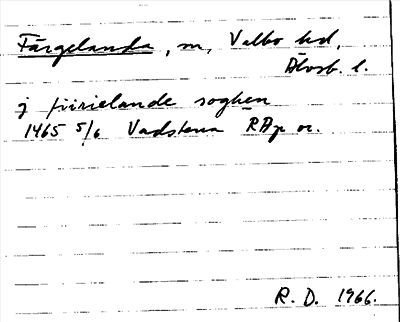 Färgelanda, sn, Valbo hd,
Älvsb. l.
j fiirielande soghen
1465 5/6 Vadstena RAp or.
R. D. 1966.